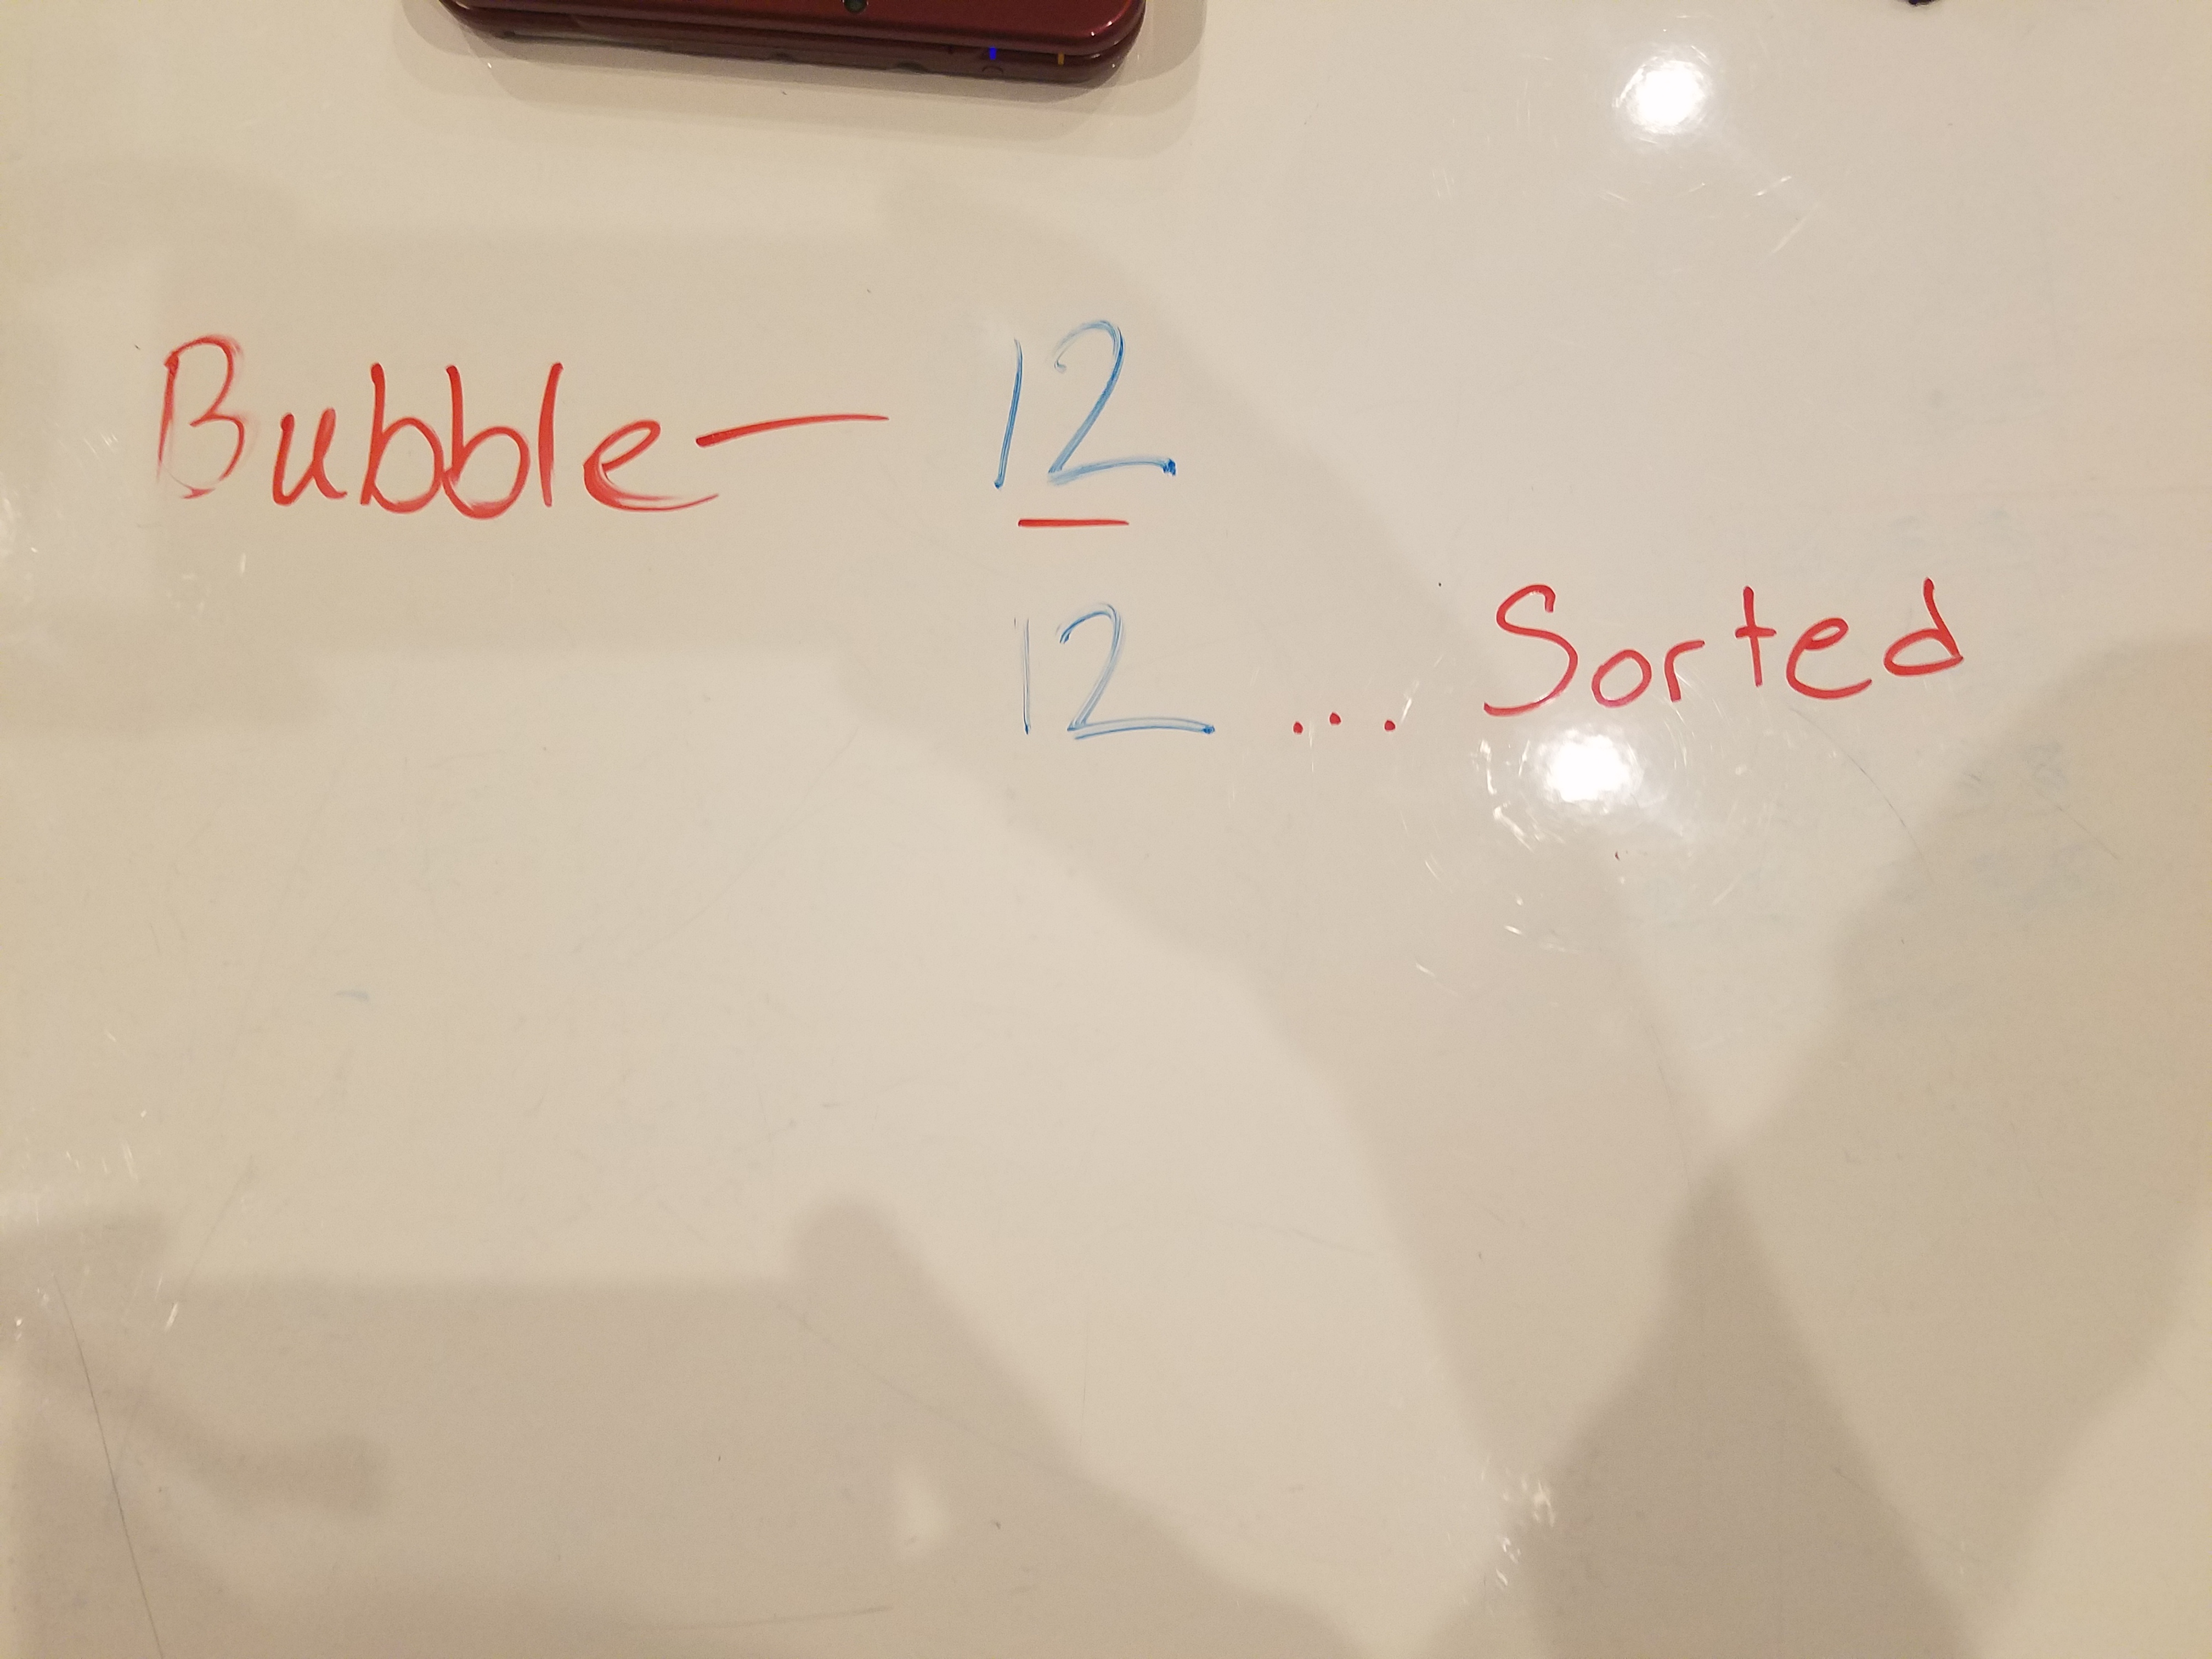 Bubble — 12
12 ... Sorted